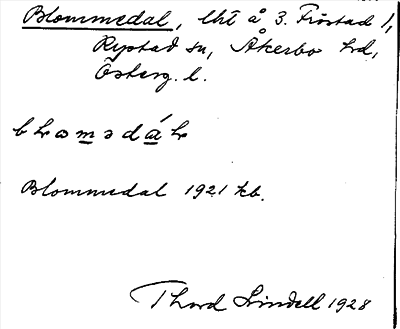 Blommedal, lht å 3. Fröstad /,
Rystad sn, Åkerbo hd,
Österg. l.
Blommedal 1921 kb.
Thord Lindell 1928